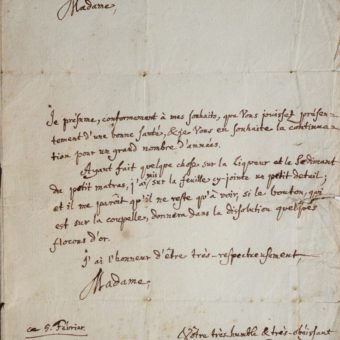 Madame,
Je présume, conformement à mes souhaits, que Vous jouisset présen-
tement d'une bonne santé, & je Vous en souhaite la continua-
tion pour un grand nombre d'années.
Ayant fait quelque chose sur la Liqueur et le Sediment
du petit matras, j'ai mis sur la feuille cy-jointe un petit detail;
et il me paroît qu'il ne reste qu'à voir, si le bouton, qui
est sur la coupelle, donnera dans la dissolution quelques
flocons d'or.
J'ai l'honneur d'être très-respectueusement,
Madame,
ce 5. Février
Vôtre très-humble & très-obéissant